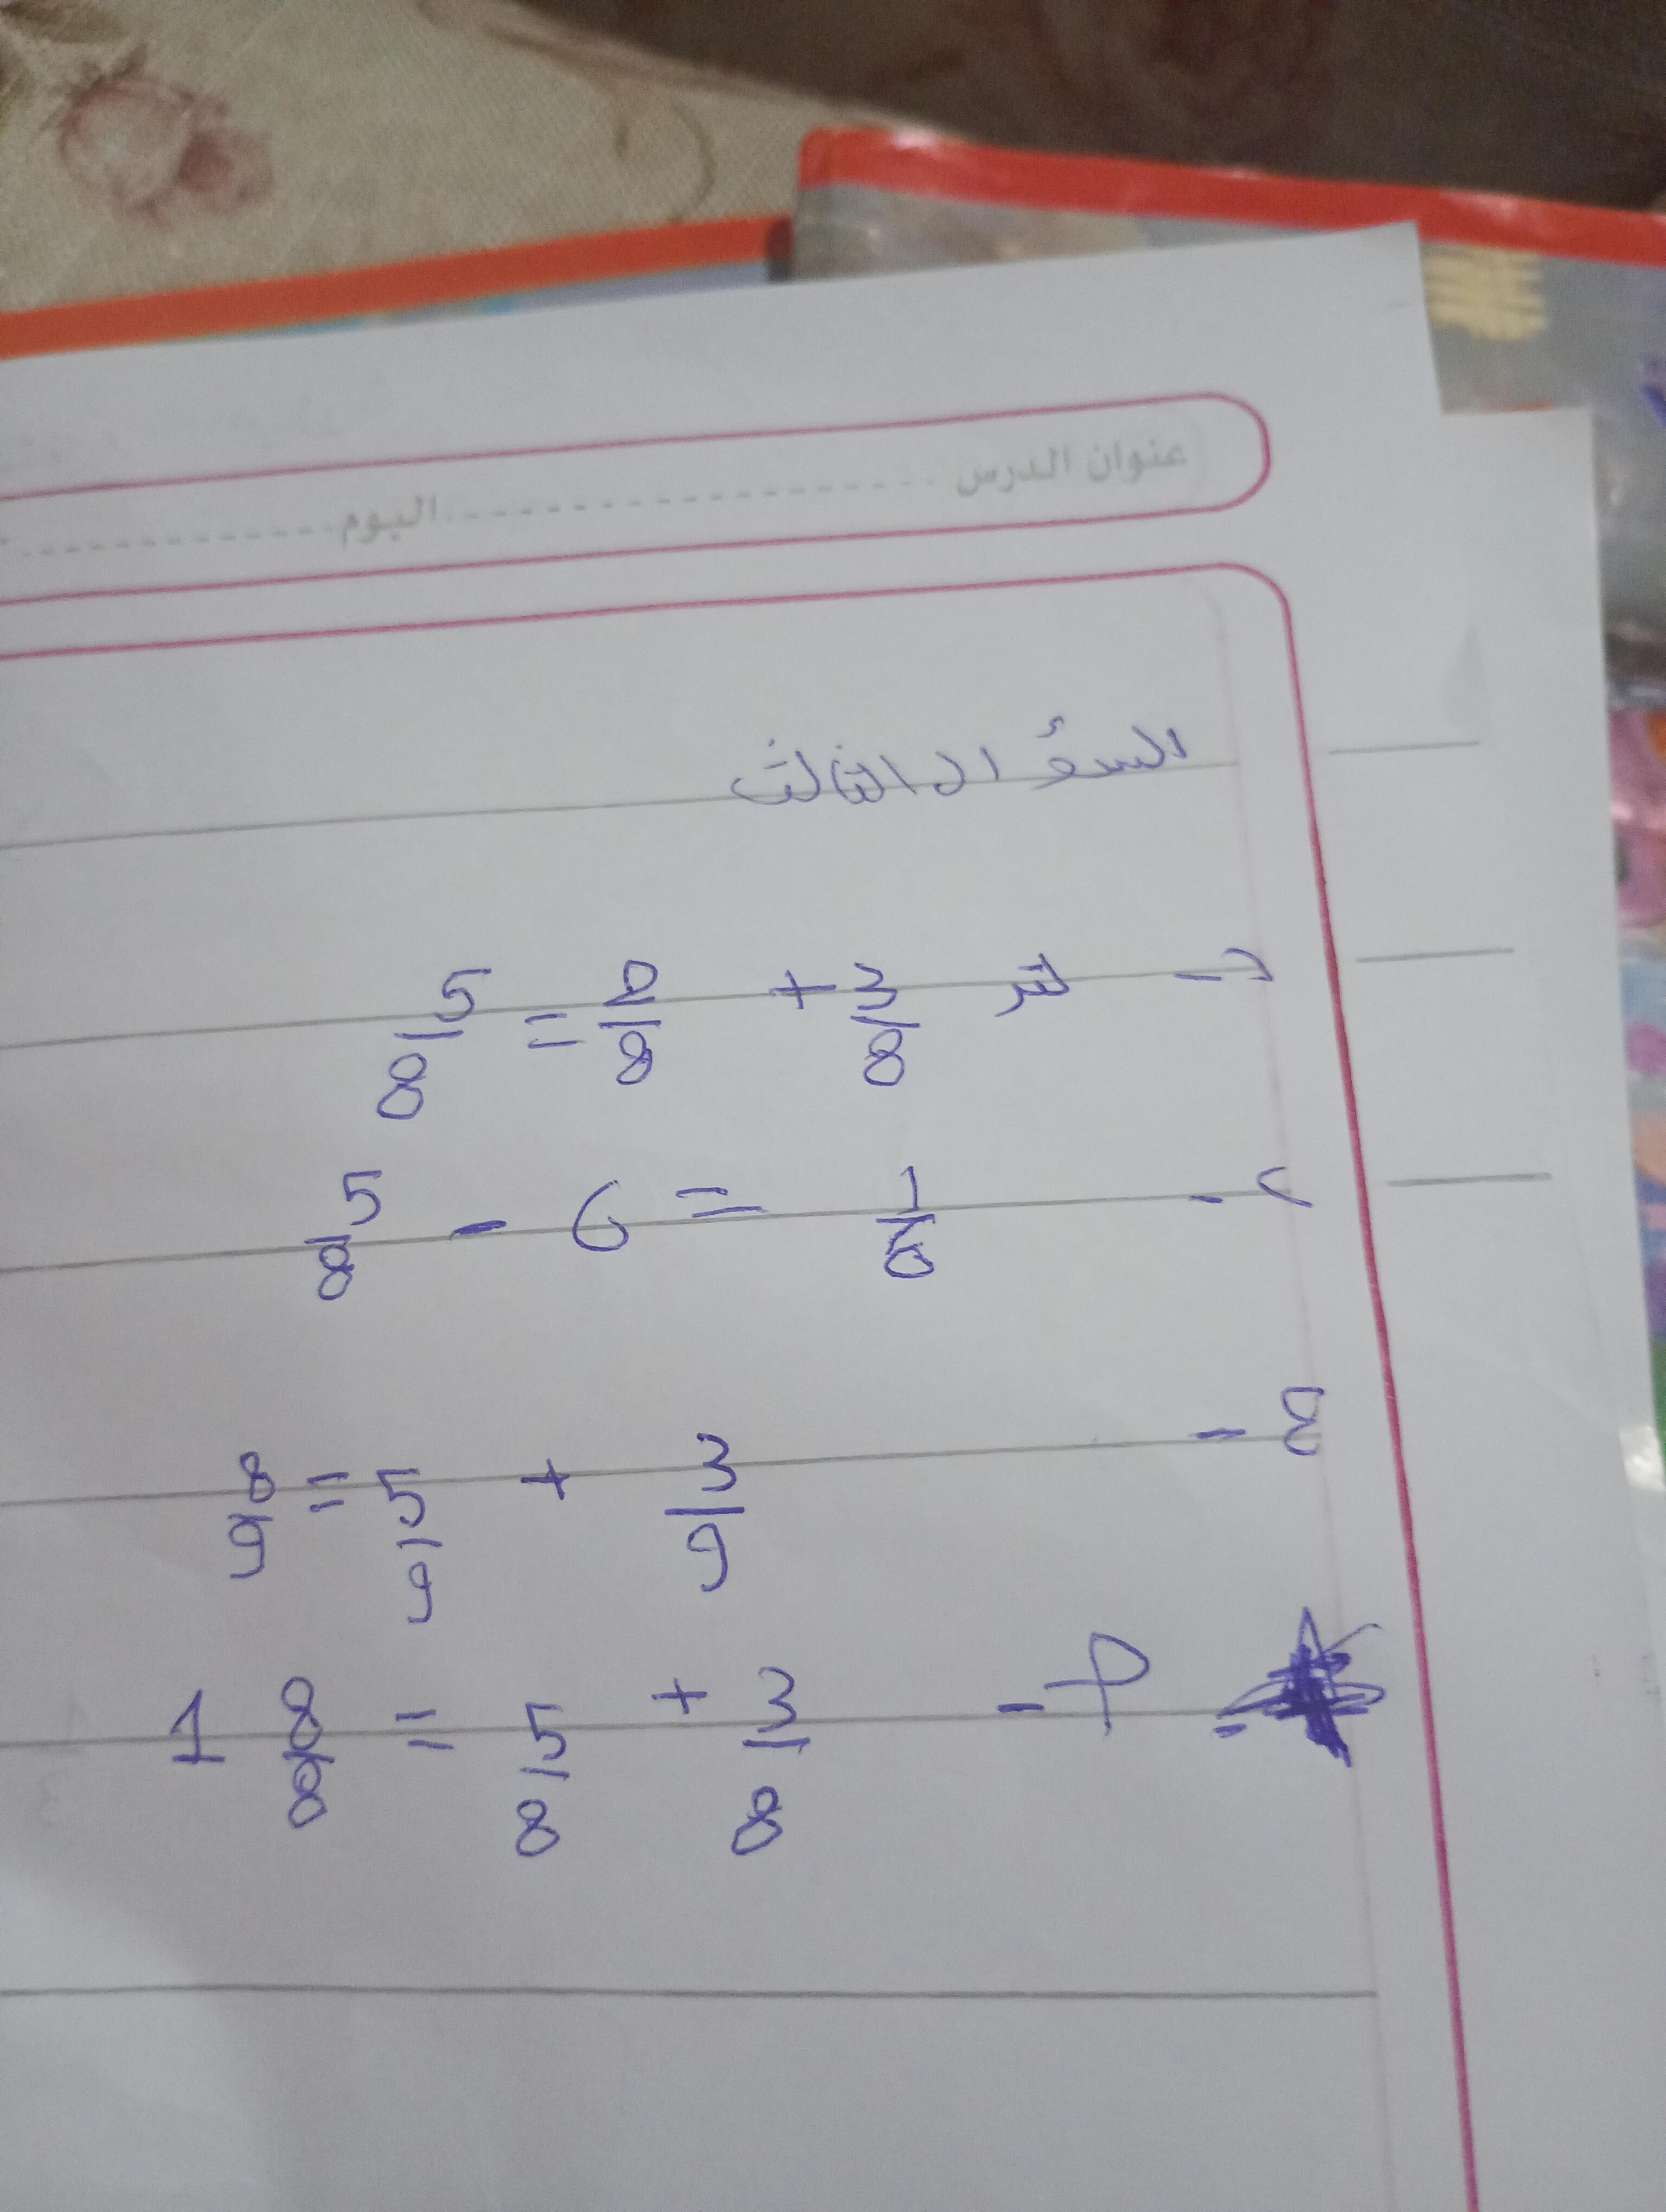 عنوان الدرس ........................ اليوم ....................
السؤال الثالث
2- لتر 3/8 + 2/8 = 5/8
1/6 = 6 - 5/8
3/9 + 5/9 = 8/9
3/8 + 5/8 = 8/8 1